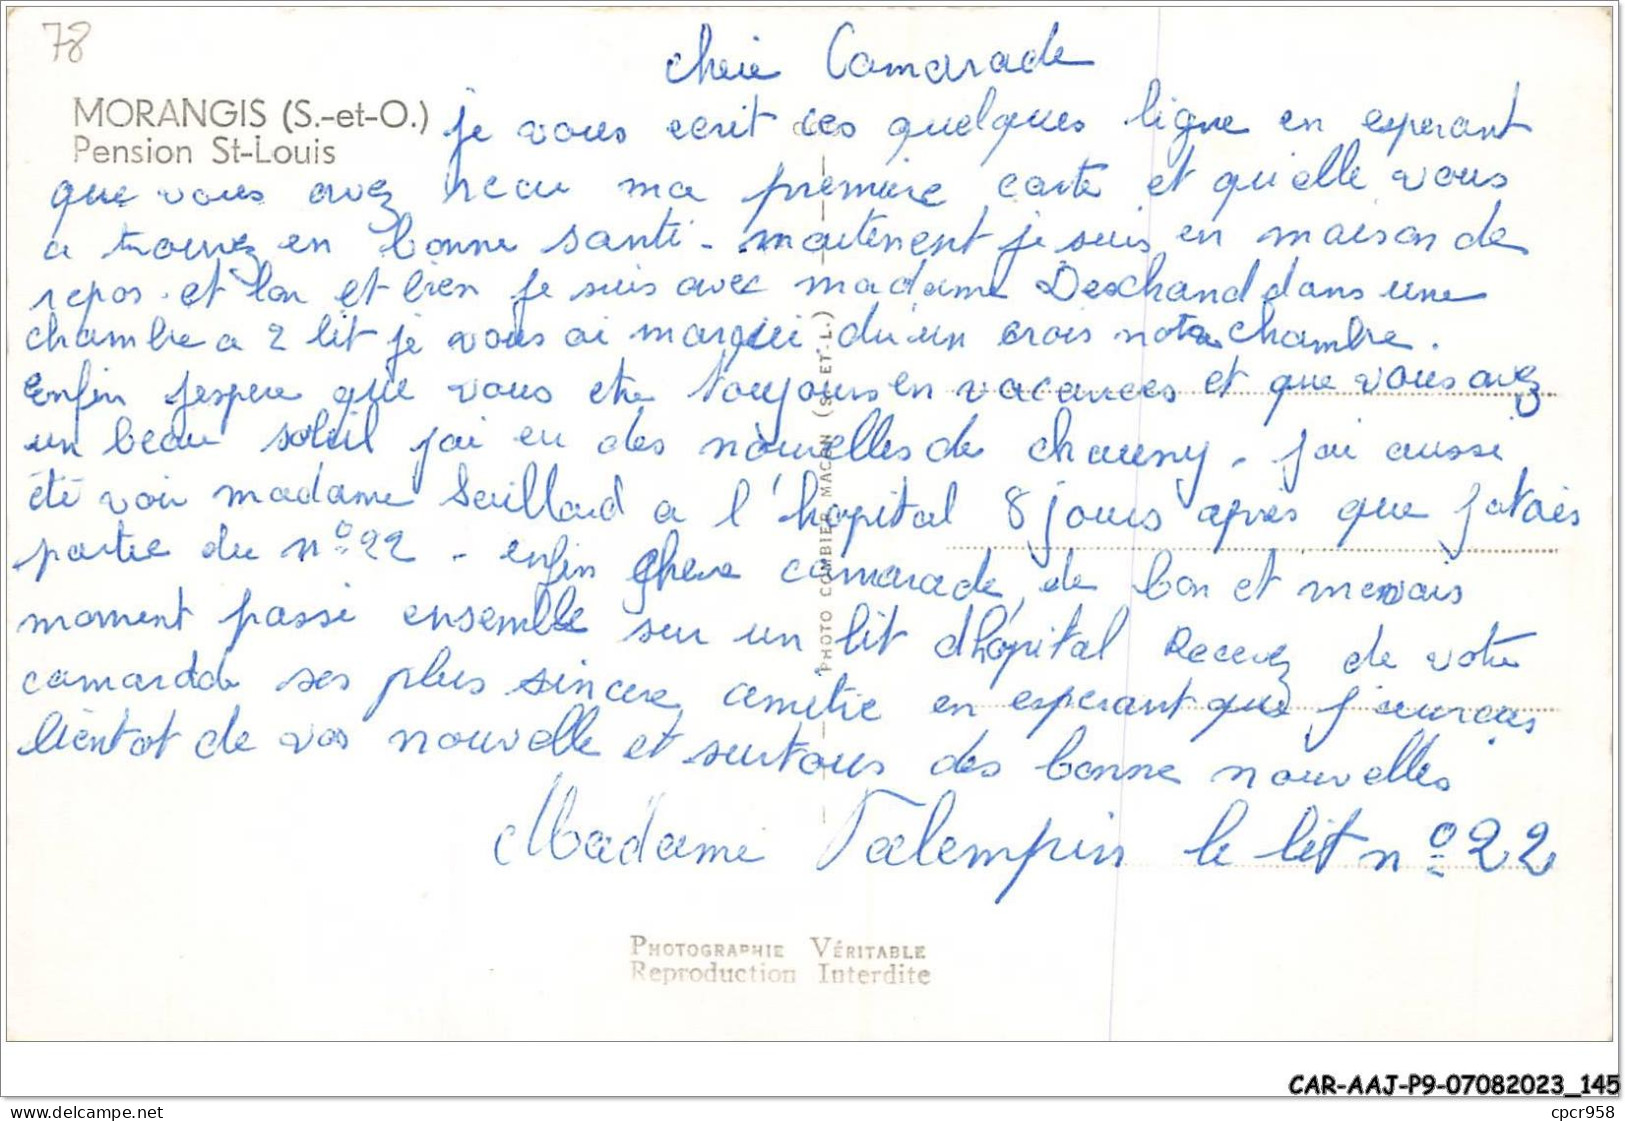 78
MORANGIS (S.-et-O.)
Pension St-Louis
cheie Camarade
je vous ecrit ces quelques ligne en esperant
que vous avez recu ma premiere carte et qu'elle vous
a trouvez en bonne santé - maitenent je suis en maison de
repos et lon et bien je suis avec madame Deschand dans une
chambre a 2 lit je vous ai marquei du un crois notre chambre.
Enfin jespere que vous ete toujours en vacances et que vous avez
un beau soleil jai eu des nouvelles de chauny - jai aussi
été voir madame Saillard a l'hopital 8 jours après que jetais
partie du nº 22 - enfin chere camarade, de bon et mauvais
moment passé ensemble sur un lit dhôpital Recevez de votre
camarade ses plus sincere amitie en esperant que j'aurais
bientot de vos nouvelle et surtous des bonne nouvelles
Madame Talempin le lit nº 22
PHOTO COMBIER MACON (S.-ET-L.)
PHOTOGRAPHIE VÉRITABLE
Reproduction Interdite
CAR-AAJ-P9-07082023_145
www.delcampe.net
cpcr958